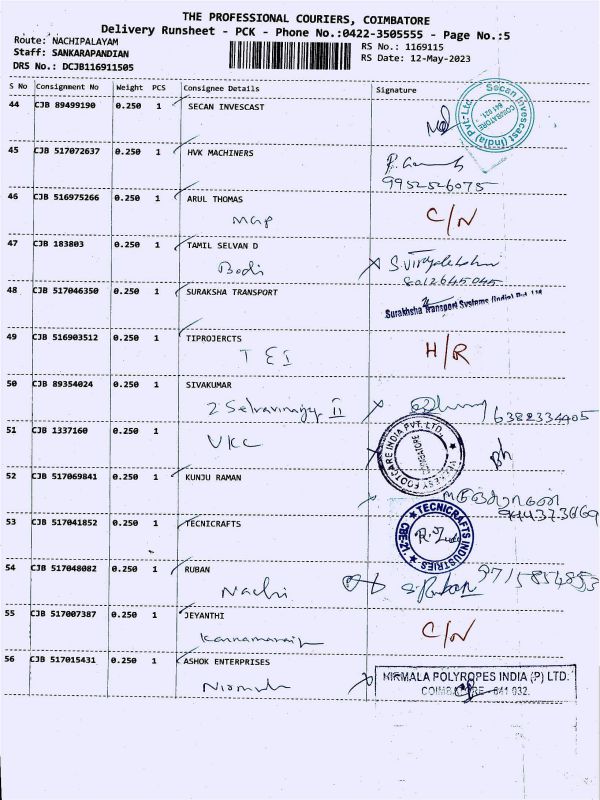 THE PROFESSIONAL COURIERS, COIMBATORE
Delivery Runsheet - PCK - Phone No.:0422-3505555 - Page No.:5
Route: NACHIPALAYAM
RS No.: 1169115
Staff: SANKARAPANDIAN
RS Date: 12-May-2023
DRS No.: DCJB116911505
S No Consignment No Weight PCS Consignee Details Signature
44 CJB 89499190 0.250 1 SECAN INVESCAST
Secan Invescast (India) Pvt. Ltd.
COIMBATORE 641 021.
45 CJB 517072637 0.250 1 HVK MACHINERS
9952526075
46 CJB 516975266 0.250 1 ARUL THOMAS
C/N
47 CJB 183803 0.250 1 TAMIL SELVAN D
Bodi
8012645045
48 CJB 517046350 0.250 1 SURAKSHA TRANSPORT
Suraksha Transport Systems (India) Pvt. Ltd
49 CJB 516903512 0.250 1 TIPROJERCTS
T E I H/R
50 CJB 89354024 0.250 1 SIVAKUMAR
6382334405
51 CJB 1337160 0.250 1
VKC
FOOTCARE INDIA PVT. LTD.,
COIMBATORE
52 CJB 517069841 0.250 1 KUNJU RAMAN
53 CJB 517041852 0.250 1 TECNICRAFTS
TECNICRAFTS INDUSTRIES
CBE-21
54 CJB 517048082 0.250 1 RUBAN
Nachi S. Ruban
55 CJB 517007387 0.250 1 JEYANTHI
C/N
56 CJB 517015431 0.250 1 ASHOK ENTERPRISES
NIRMALA POLYROPES INDIA (P) LTD.
COIMBATORE - 641 032.